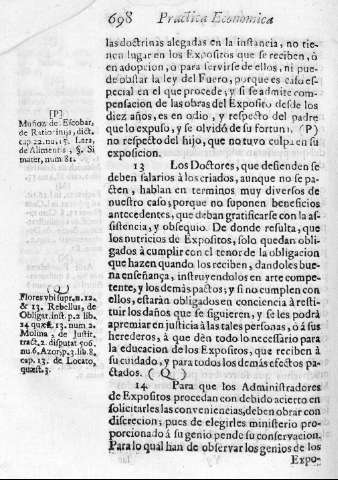 698 Practica Economica
las doctrinas alegadas en la instancia, no tie-
nen lugar en los Expositos que se reciben, ò
en adopcion, o para servirse de ellos, ni pue-
de obstar la ley del Fuero, porque es caso es-
pecial en el que procede, y si se admite com-
pensacion de las obras del Exposito desde los
diez años, es en odio, y respecto del padre
que lo expuso, y se olvidó de su fortuna, (P)
no respecto del hijo, que no tuvo culpa en su
exposicion.
13 Los Doctores, que defienden se
deben salarios à los criados, aunque no se pa-
cten, hablan en terminos muy diversos de
nuestro caso, porque no suponen beneficios
antecedentes, que deban gratificarse con la as-
sistencia, y obsequio. De donde resulta, que
los nutricios de Expositos, solo quedan obli-
gados à cumplir con el tenor de la obligacion
que hazen quando los reciben, dandoles bue-
na enseñança, instruyendolos en arte compe-
tente, y los demás pactos; y si no cumplen con
ellos, estarán obligados en conciencia à resti-
tuir los daños que se siguieren, y se les podrà
apremiar en justicia à las tales personas, ò à sus
herederos, à que den todo lo necessario para
la educacion de los Expositos, que reciben à
su cuidado, y para todos los demàs efectos pa-
ctados. (Q)
14. Para que los Administradores
de Expositos procedan con debido acierto en
solicitarles las conveniencias, deben obrar con
discrecion; pues de elegirles ministerio pro-
porcionado à su genio pende su conservacion.
Para lo qual han de observar los genios de los
Expo-
[P]
Muñoz de Escobar,
de Ratiocinijs, dict.
cap. 22. nu. 15. Lara,
de Alimentis, §. Si
mater, num. 81.
(Q)
Flores ubi supr. n. 12.
& 13. Rebellus, de
Obligat. inst. p. 2. lib.
14. quæst. 13. num. 2.
Molina, de Justit.
tract. 2. disputat. 506.
nu. 6. Azor, p. 3. lib. 8.
cap. 13. de Locato,
quæst. 3.